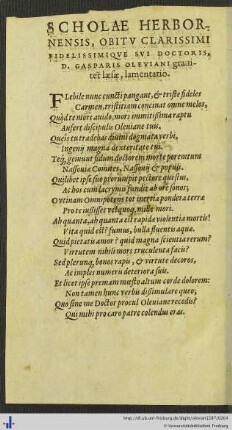 SCHOLAE HERBOR-
NENSIS, OBITV CLARISSIMI
FIDELISSIMIQVE SVI DOCTORIS,
D. GASPARIS OLEVIANI graui-
ter læsæ, lamentatio.
FLebile nunc cuncti pangant, & triste fideles
Carmen, tristitiam concinat omne melos,
Quòd te mors auido, mors immitissima raptu
Aufert discipulis Oleuiane tuis,
Queis tu tradebas diuini dogmata verbi,
Ingenij magna dexteritate tui.
Teq́; gemunt fidum doctorem morte peremtum
Nassouiæ Comites, Nassouij & populi.
Quilibet ipse suo prorumpit pectore questus,
Ac hos cum lacrymis fundit ab ore sonos,
O vtinam Omnipotens tot inertia pondera terra
Pro te iustisset reliquisq́;
Ah quanta, ah quanta est rapida violentia mortis!
Vita quid est? fumus, bulla, fluentis aqua.
Quid pietatis amor? quid magna scientia rerum?
Virtutem nihili mors truculenta facit?
Sed plerunq́; bonos rapit, & virtute decoros,
Ac implet numeru deteriora suis.
Et licet ipse premam mœsto altum corde dolorem:
Non tamen hunc verbis dissimulare queo;
Quo sine me Doctor procul Oleuiane recedis?
Qui mihi pro caro patre colendus eras.
http://dl.ub.uni-freiburg.de/diglit/olevian1587/0204
© Universitätsbibliothek Freiburg